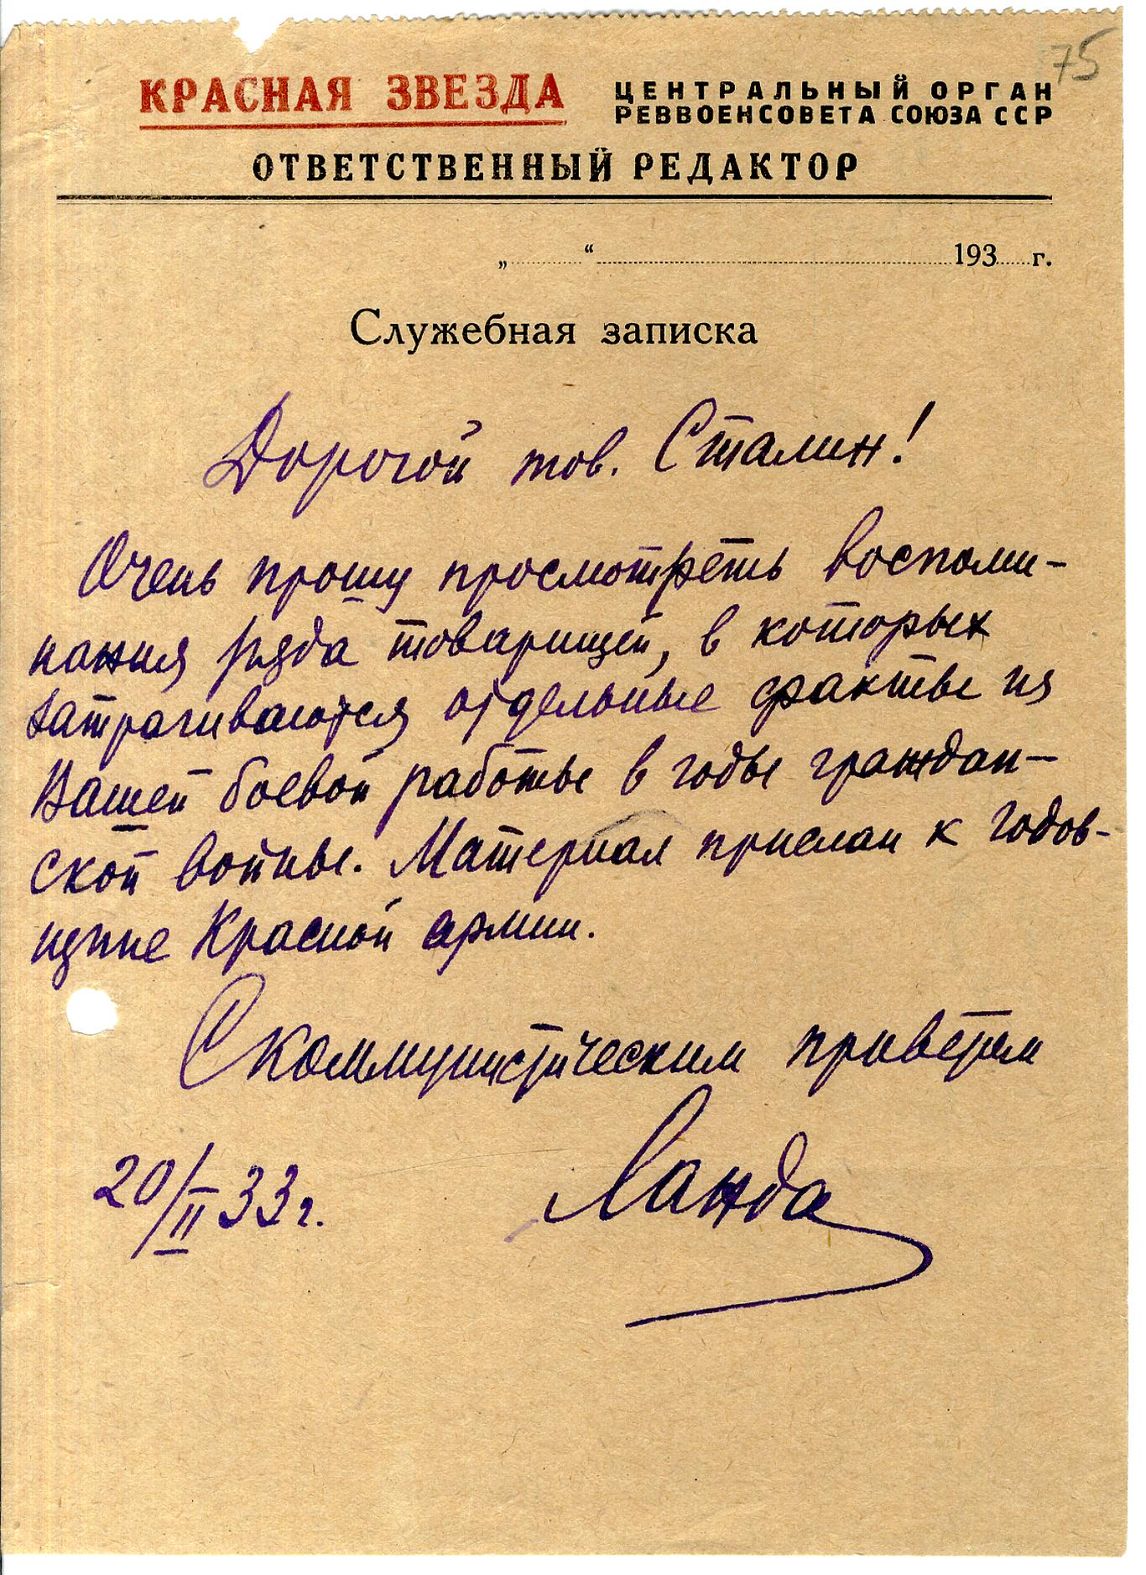 75
КРАСНАЯ ЗВЕЗДА
ЦЕНТРАЛЬНЫЙ ОРГАН
РЕВВОЕНСОВЕТА СОЮЗА ССР
ОТВЕТСТВЕННЫЙ РЕДАКТОР
„ “ 193 г.
Служебная записка
Дорогой тов. Сталин!
Очень прошу просмотреть воспоми-
нания ряда товарищей, в которых
затрагиваются отдельные факты из
Вашей боевой работы в годы граждан-
ской войны. Материал прислан к годов-
щине Красной армии.
С коммунистическим приветом
20/II 33 г.
Ланда